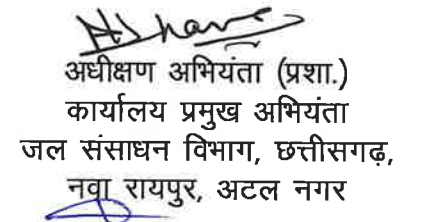 अधीक्षण अभियंता (प्रशा.)
कार्यालय प्रमुख अभियंता
जल संसाधन विभाग, छत्तीसगढ़,
नवा रायपुर, अटल नगर